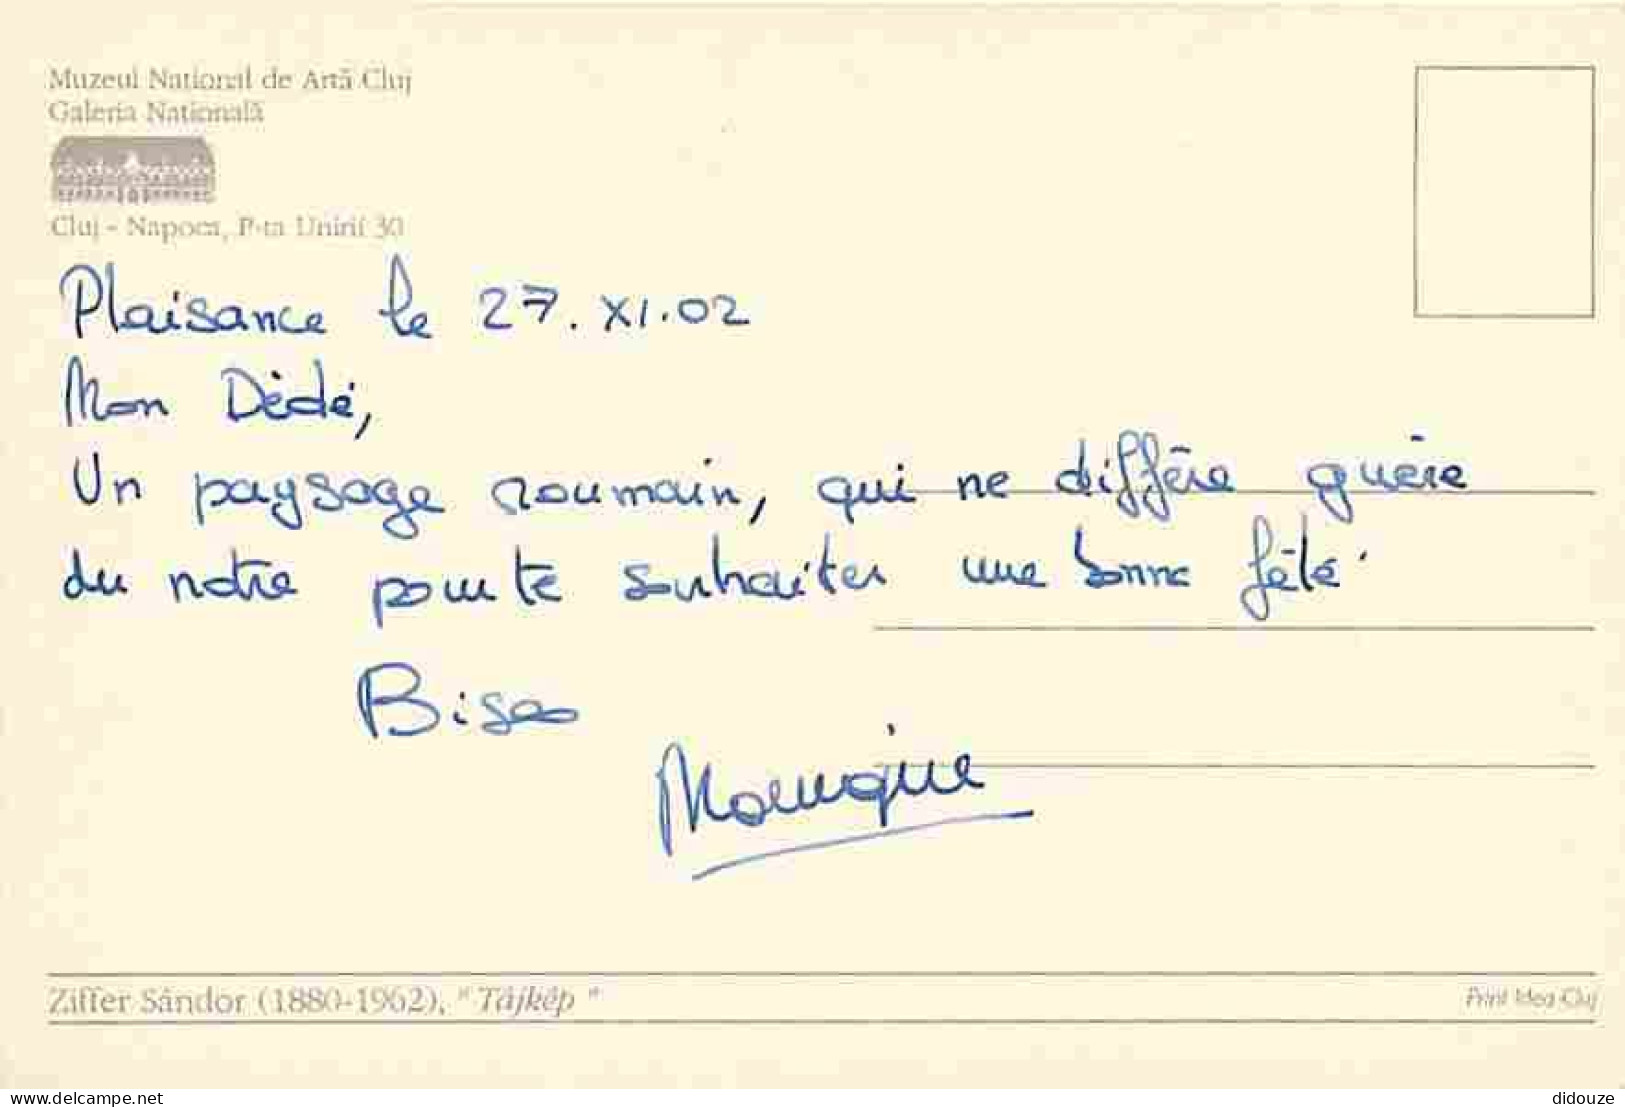 Muzeul National de Artă Cluj
Galeria Natională
Cluj - Napoca, P-ta Unirii 30
Plaisance le 27. XI. 02
Mon Dédé,
Un paysage roumain, qui ne diffère guère
du notre pour te souhaiter une bonne fête.
Bises
Monique
Ziffer Sándor (1880-1962), "Tájkép"
Print Idea Cluj
www.delcampe.net
didouze